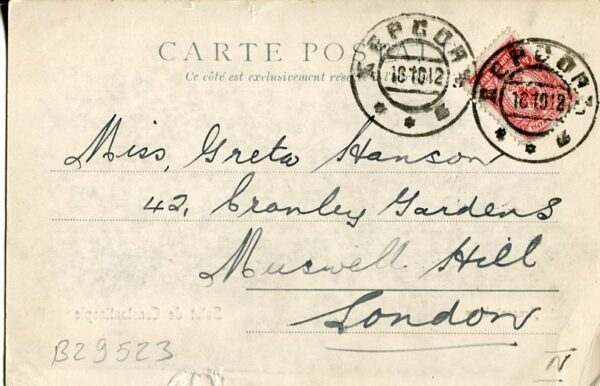 CARTE POSTALE
Ce côté est exclusivement réservé à l'adresse
ХЕРСОНЪ
18 10 12
ХЕРСОНЪ
18 10 12
Miss, Greta Hanson
42, Cranley Gardens
Muswell Hill
London
Salut de Constantinople
B29523
N